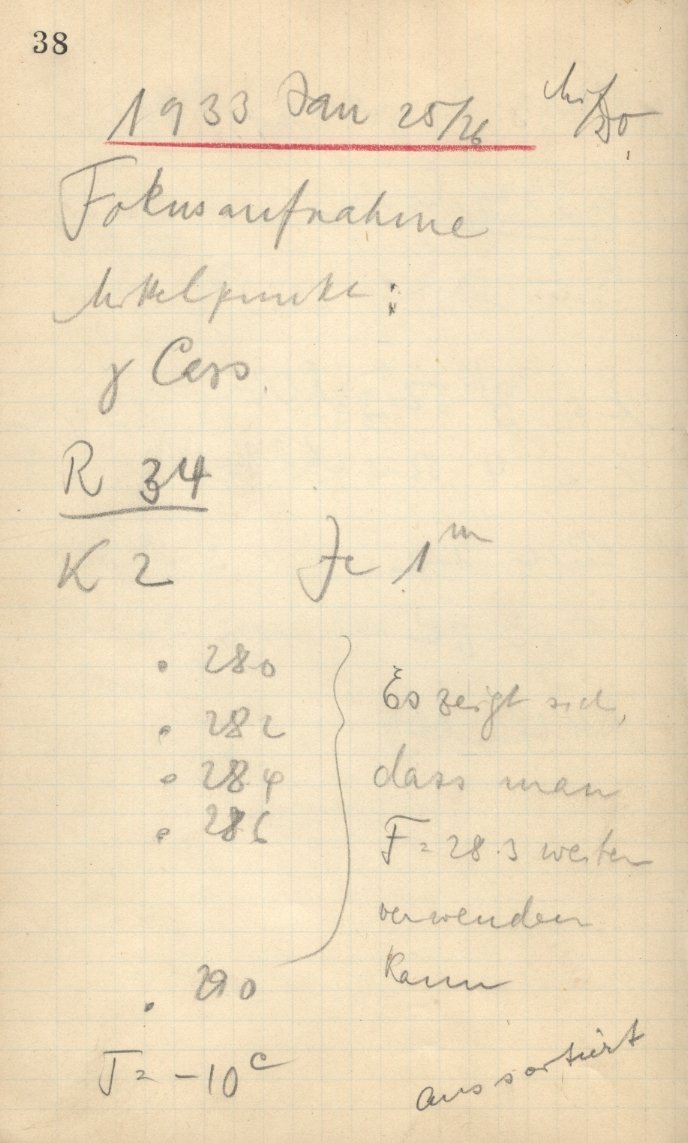 38
1933 Jan 25/26 Mi/Do
Fokusaufnahme
Mittelpunkt:
γ Cass.
R 34
K 2 Je 1ᵐ
. 280
. 282
. 284
. 286
. 290
Es zeigt sich,
dass man
F = 28.3 weiter
verwenden
kann
T = -10 c
aussortiert